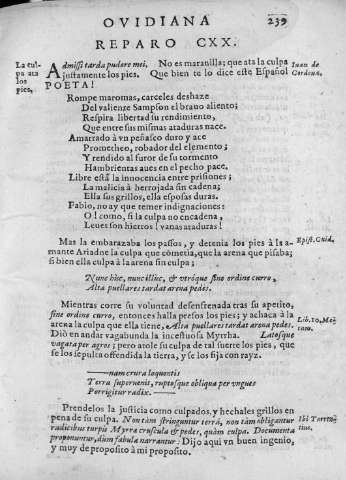 OVIDIANA 239
REPARO CXX.
La culpa ata los pies,
Admissi tarda pudore mei, No es marauilla; que ata la culpa
ajustamente los pies. Que bien te lo dice este Español
POETA!
Iuan de Cordoua.
Rompe maromas, carceles deshaze
Del valiente Sampson el brauo aliento;
Respira libertad su rendimiento,
Que entre sus mismas ataduras nace.
Amarrado à vn peñasco duro y ace
Prometheo, robador del elemento;
Y rendido al furor de su tormento
Hambrientas aues en el pecho pace.
Libre està la innocencia entre prisiones;
La malicia à herrojada sin cadena;
Ella sus grillos, ella esposas duras.
Fabio, no ay que temer indignaciones:
O! como, si la culpa no encadena,
Leues son hierros! vanas ataduras!
Mas la embarazaba los passos, y detenia los pies à la amante
Ariadne la culpa que cometia, que la arena que pisaba;
si bien ella culpa à la arena sin culpa;
Epist. Ouid.
Nunc huc, nunc illuc, & vtroque sine ordine curro,
Alta puellares tardat arena pedes.
Mientras corre su voluntad desenfrenada tras su apetito,
sine ordine curro, entonces halla presos los pies; y achaca à la
arena la culpa que ella tiene, Alta puellares tardat arena pedes.
Diò en andar vagabunda la incestuosa Myrrha. Latosque
vagata per agros; pero atole su culpa de tal suerte los pies, que
se los sepulta offendida la tierra, y se los fija con rayz.
Lib. 10. Metam.
— nam crura loquentis
Terra superuenit, ruptosque obliqua per vngues
Porrigitur radix. —
Prendelos la justicia como culpados, y hechales grillos en
pena de su culpa. Non tàm stringuntur terrâ, non tàm obligantur
radicibus turpis Myrræ cruscula & pedes, quàm culpa. Documenta
proponuntur, dùm fabula narrantur: Dijo aqui vn buen ingenio,
y muy de proposito à mi proposito.